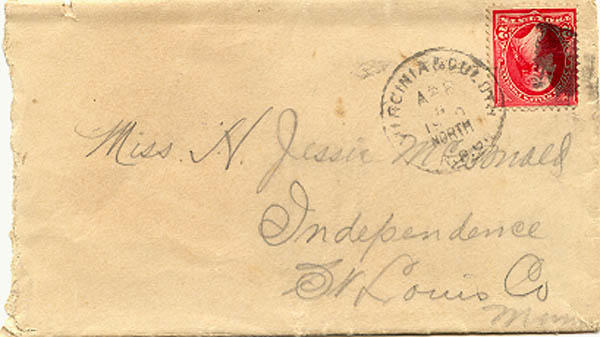 VIRGINIA & DULUTH
NORTH
R.P.O.
Miss. H. Jessie McDonald
Independence
St Louis Co
Minn